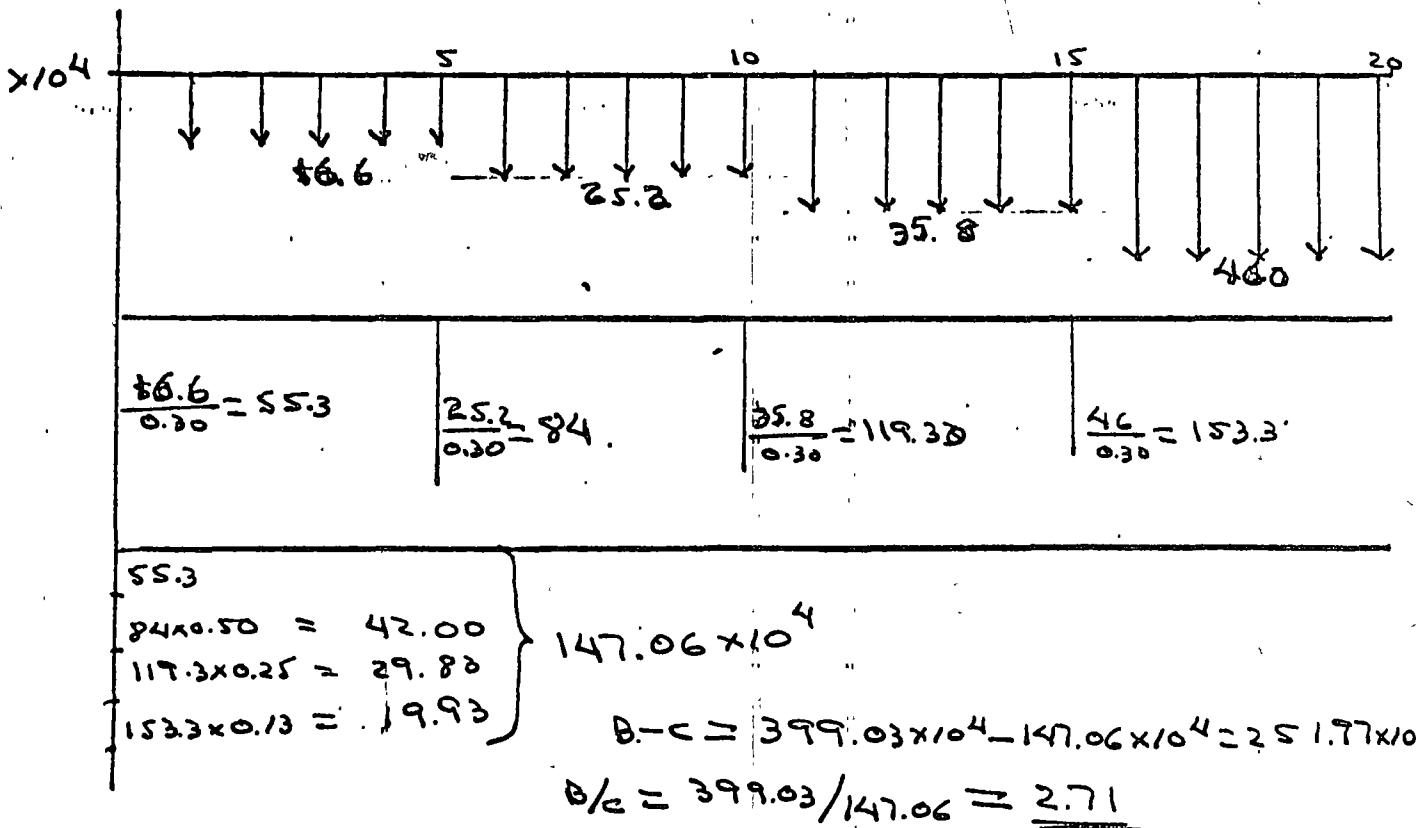 5 10 15 20
×10⁴
$6.6 25.2 35.8 460
$6.6/0.30 = 55.3 25.2/0.30 = 84. 35.8/0.30 = 119.33 46/0.30 = 153.3
55.3
84×0.50 = 42.00
119.3×0.25 = 29.83
153.3×0.13 = 19.93
147.06 ×10⁴
B-C = 399.03×10⁴ - 147.06×10⁴ = 251.97×10
B/C = 399.03/147.06 = 2.71